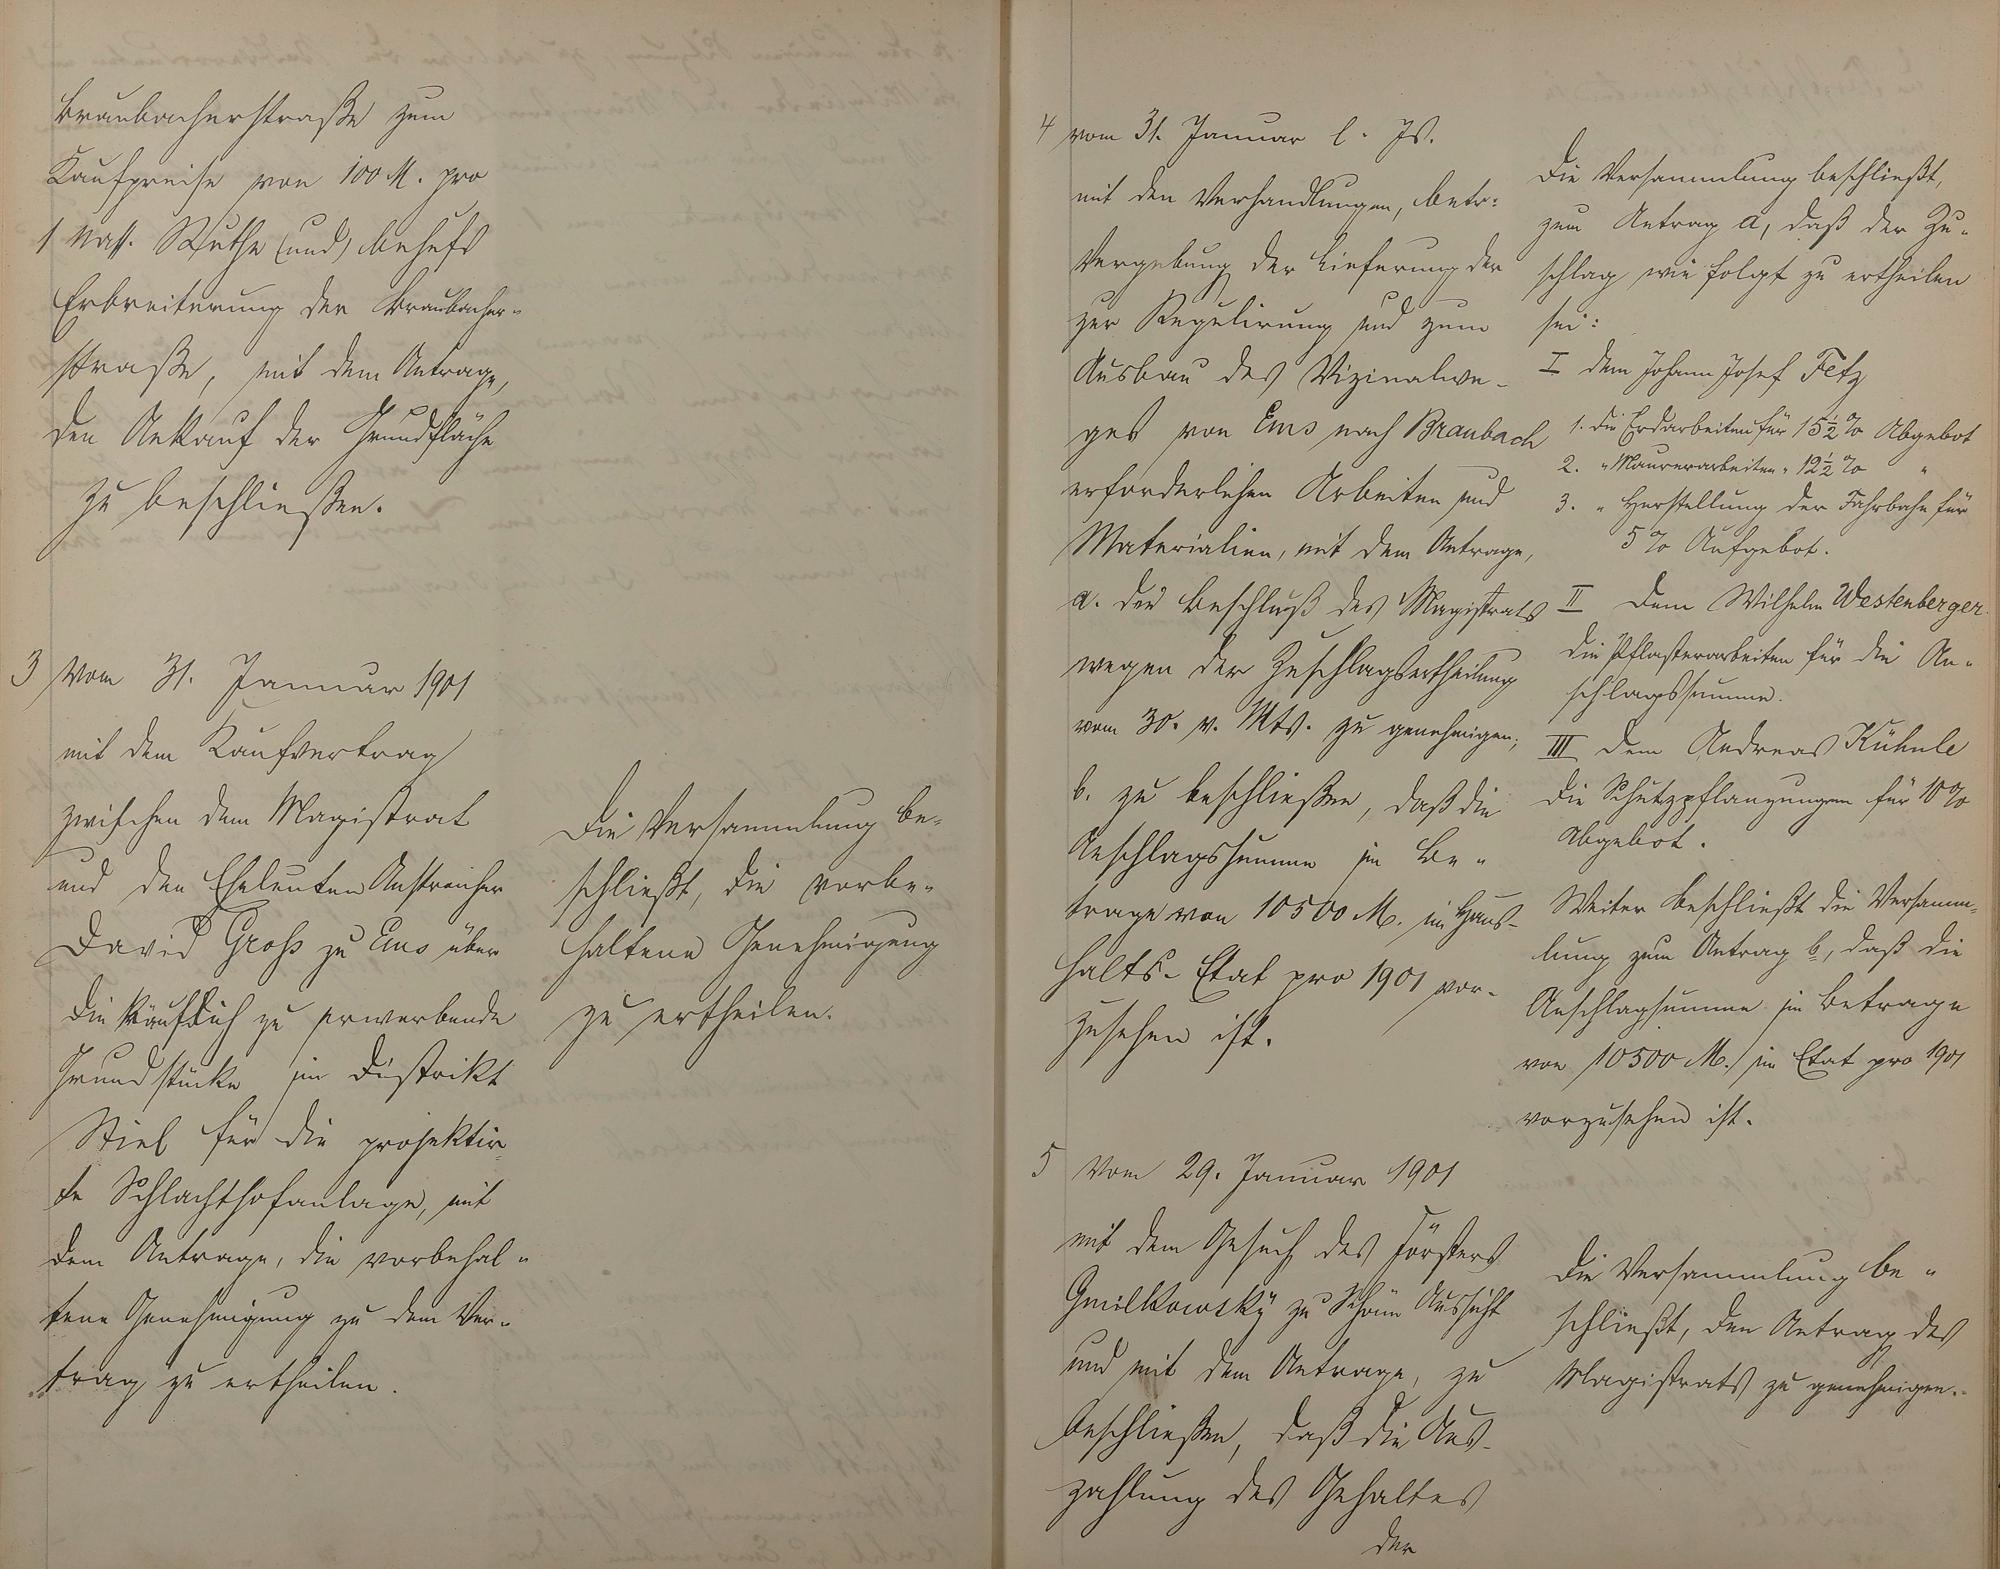 Braubacherstraße zum
Kaufpreise von 100 M. pro
1 Nass. Ruthe (und) behufs
Erbreiterung der Braubacher-
straße, mit dem Antrage,
den Ankauf der Grundfläche
zu beschließen.
3 Vom 31. Januar 1901
mit dem Kaufvertrag
zwischen dem Magistrat
und den Eheleuten Anstreicher
David Groß zu Ems über
die käuflich zu erwerbende
Grundstücke im Distrikt
für die projektir-
te Schlachthofanlage, mit
dem Antrage, die vorbehal-
tene Genehmigung zu dem Ver-
trag zu ertheilen.
Die Versammlung be-
schließt, die vorbe-
haltene Genehmigung
zu ertheilen.
4 vom 31. Januar l. Js.
mit den Verhandlungen, betr:
Vergebung der Lieferung der
zur Regulirung und zum
Ausbau des Vizinalwe-
ges von Ems nach Braubach
erforderlichen Arbeiten und
Materialien, mit dem Antrage,
a. den Beschluß des Magistrats
wegen der Zuschlagsertheilung
vom 30. v. Mts. zu genehmigen;
b. zu beschließen, daß die
Anschlagssumme im Be-
trage von 10500 M. im Haus-
halts-Etat pro 1901 vor-
zusehen ist.
Die Versammlung beschließt,
zum Antrag a, daß der Zu-
schlag wie folgt zu ertheilen
sei:
I dem Johann Josef Fetz
1. die Erdarbeiten für 15½ % Abgebot
2. " Maurerarbeiten " 12½ % "
3. " Herstellung der Fahrbahn für
5 % Aufgebot.
II Dem Wilhelm Westenberger
die Pflasterarbeiten für die An-
schlagssumme.
III Dem Andreas Kühnle
die Schutzpflanzungen für 10 %
Abgebot.
Weiter beschließt die Versamm-
lung zum Antrag b, daß die
Anschlagsumme im Betrage
von 10500 M. im Etat pro 1901
vorzusehen ist.
5 Vom 29. Januar 1901
mit dem Gesuch des Försters
Gmilkowsky zu Schöne Aussicht
und mit dem Antrage, zu
beschließen, daß die Aus-
zahlung des Gehaltes
der
Die Versammlung be-
schließt, den Antrag des
Magistrats zu genehmigen.